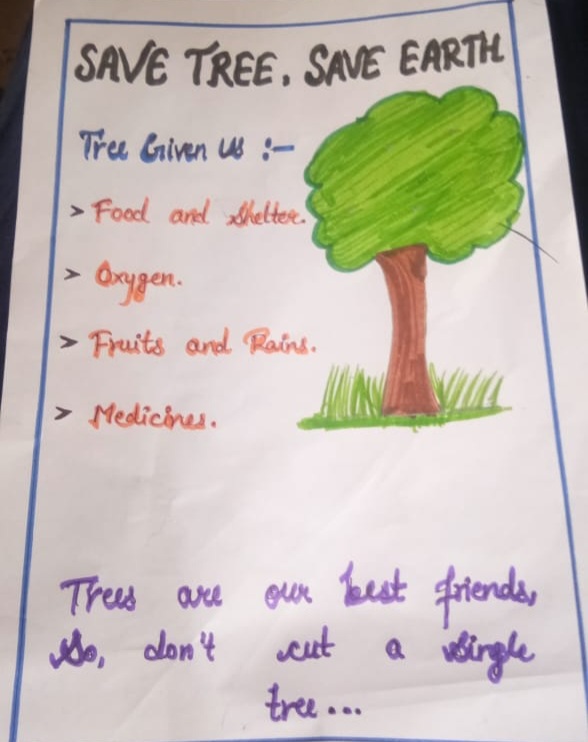 SAVE TREE, SAVE EARTH
Tree Given Us :-
> Food and Shelter.
> Oxygen.
> Fruits and Rains.
> Medicines.
Trees are our best friends,
So, don't cut a single
tree...